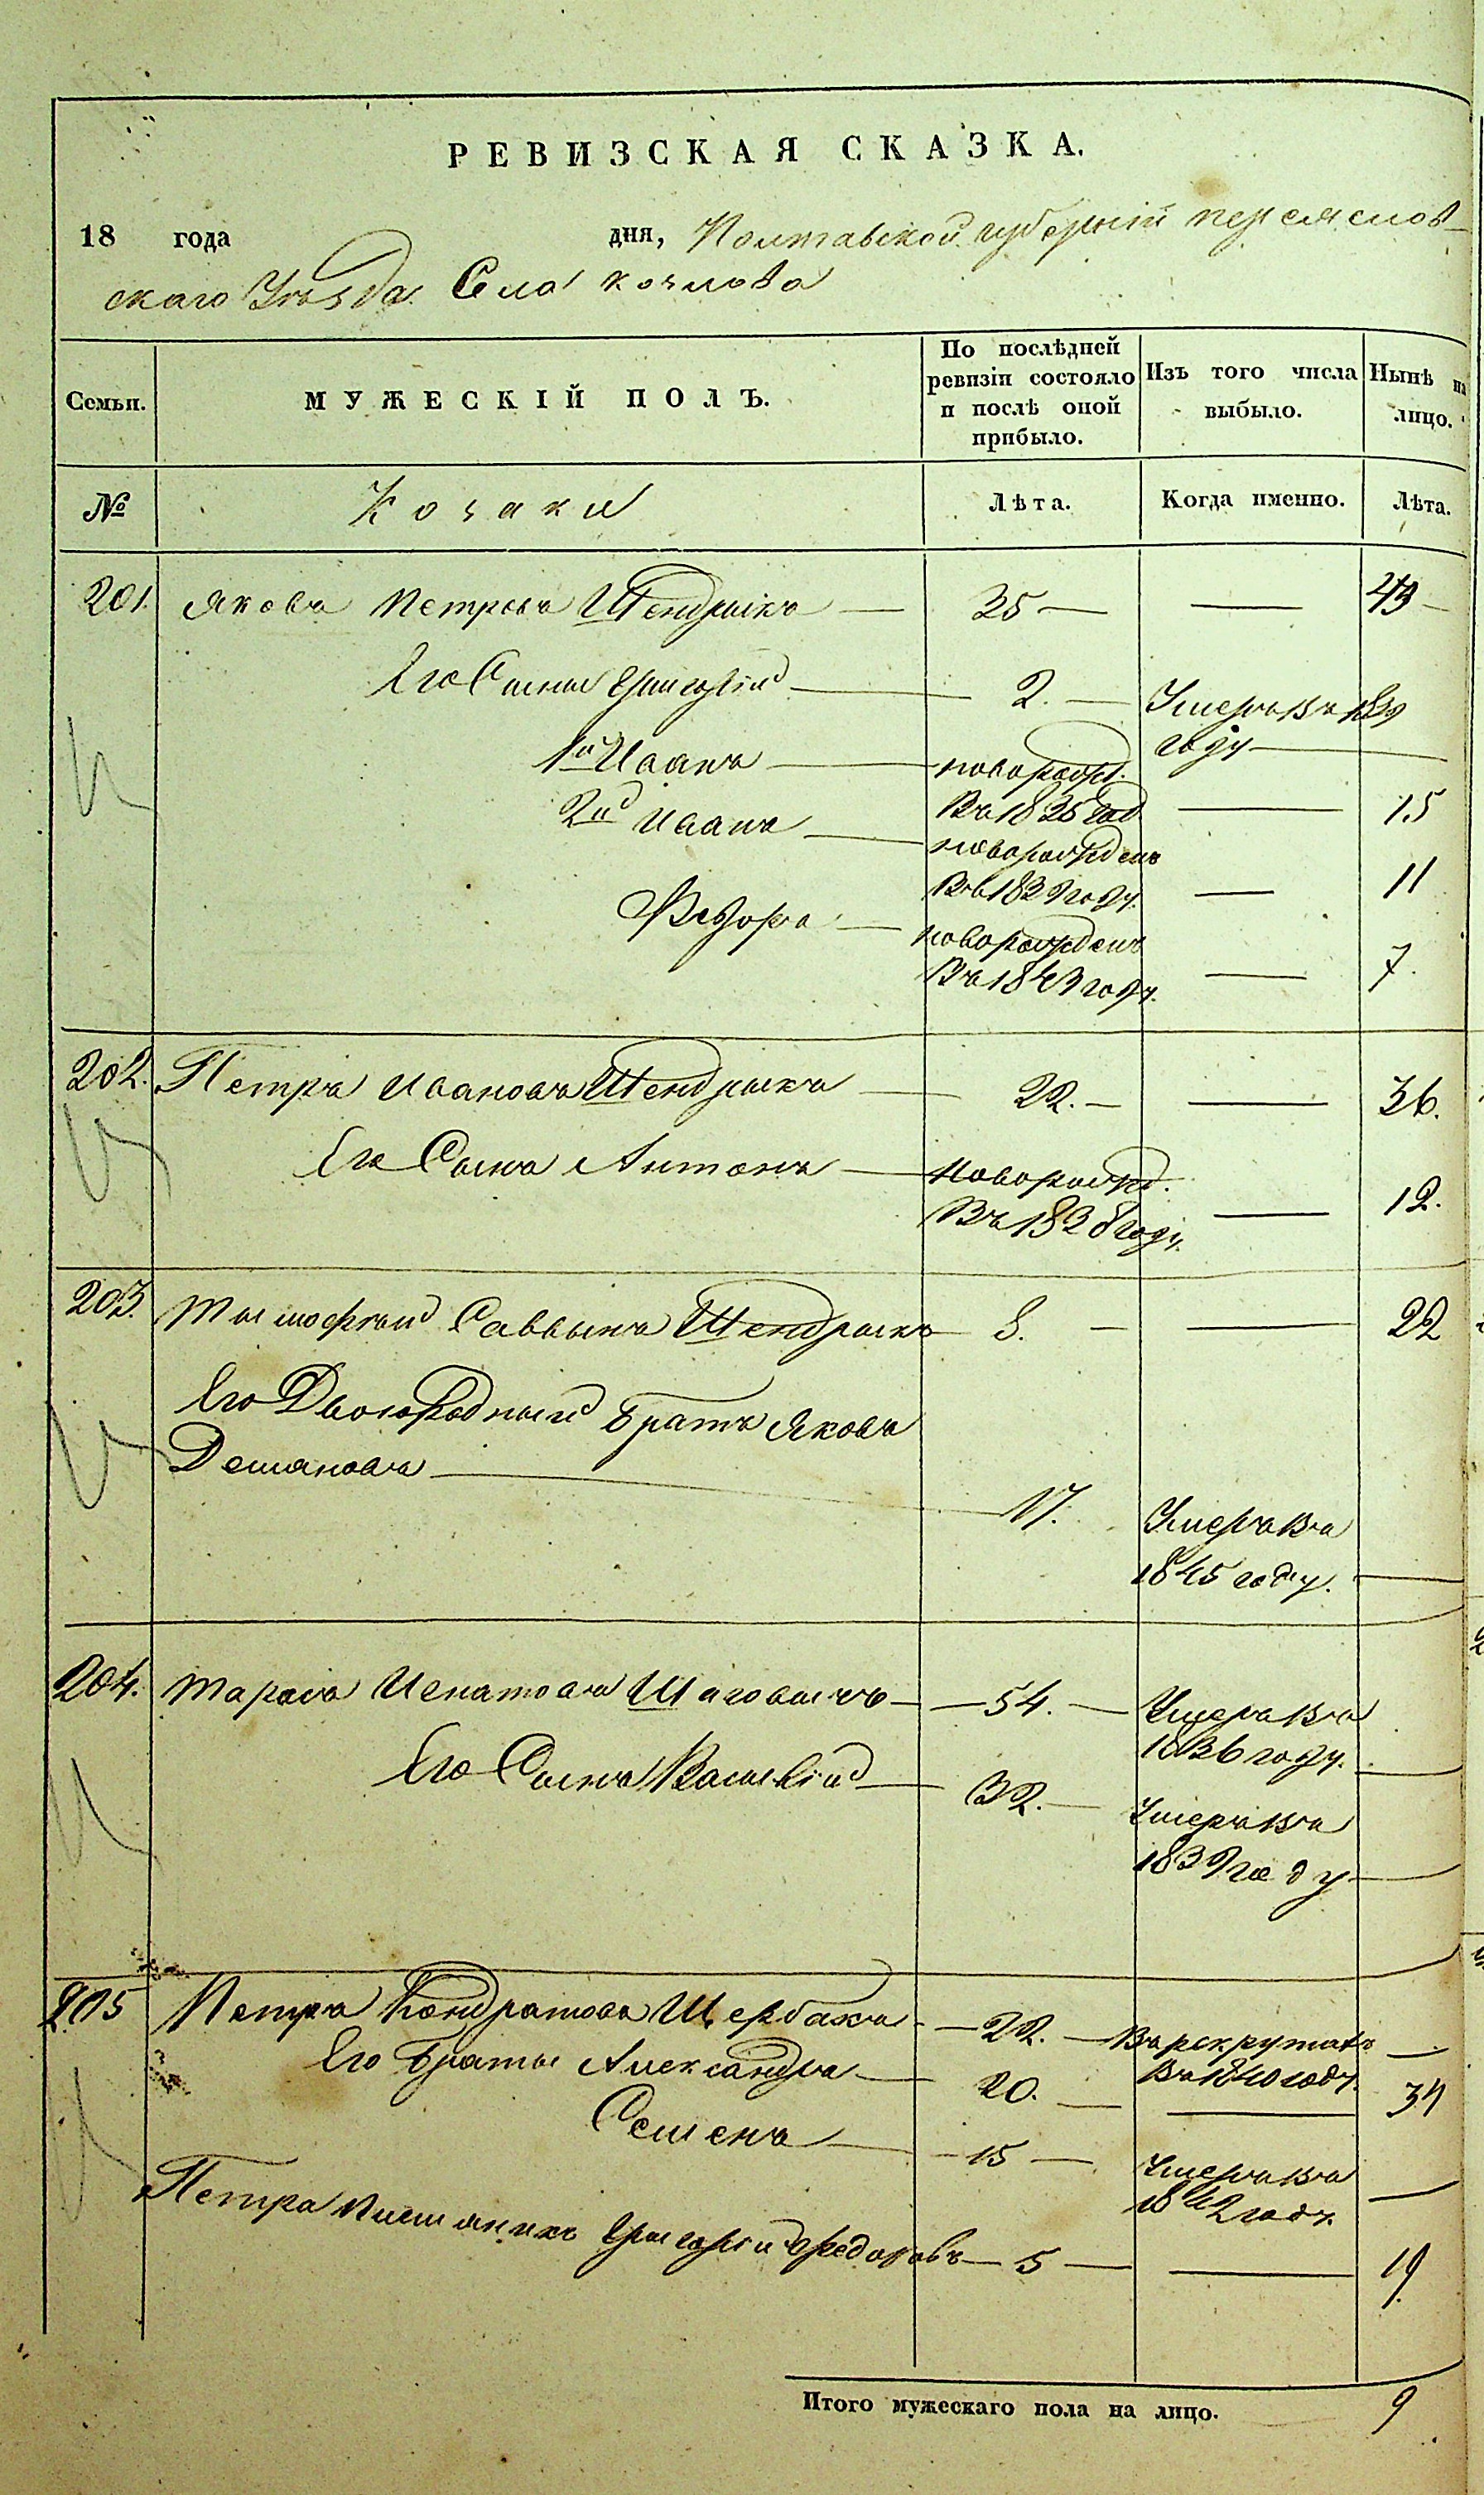 РЕВИЗСКАЯ СКАЗКА.
18 года дня, Полтавской губерній переяслов-
скаго Уезда Села козлова
Семьи. МУЖЕСКІЙ ПОЛЪ. По послѣдней ревизіи состояло и послѣ оной прибыло. Изъ того числа выбыло. Нынѣ на лицо.
№ Козаки Лѣта. Когда именно. Лѣта.
201. Яковъ Петровъ Штендрикъ — 35 — —
Его Сыны Григорій — 2. — Умеръ въ 1839
году —
1й Иванъ — новорожд.
Въ 1835 год — 15
2й Иванъ — новорожденъ
Въ 1839 году. — 11
Федоръ — новорожденъ
Въ 1843 году. — 7.
202. Петръ Ивановъ Штендрыкъ — 22. — — 36.
Его Сынъ Антонъ — Новорожд.
Въ 1838 году. — 12.
203. Тымофѣй Саввынъ Штендрыкъ — 8. — — 22
Его Двоюродный братъ Яковъ
Демяновъ — 17. Умеръ въ
1845 году. —
204. Тарасъ Игнатовъ — 54. — Умеръ въ
1836 году. —
Его Сынъ Василій — 32. — Умеръ въ
1839 году —
205 Петръ Кондратовъ Щербакъ — 22. — Въ рекрутахъ —
Въ 1840 году.
Его браты Александръ — 20. — — 34
Семенъ — 15 — Умеръ въ
1842 году —
Петра Григорій Федоровъ — 5 — — 19
Итого мужескаго пола на лицо. 9